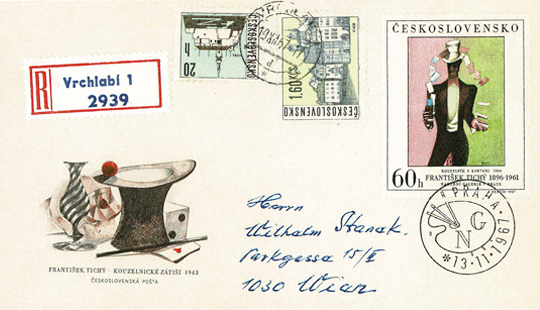 R
Vrchlabí 1
2939
ČESKOSLOVENSKO
20 h
ČESKOSLOVENSKO
1.60 KČS
ČESKOSLOVENSKO
KOUZELNÍK S KARTAMI 1934
FRANTIŠEK TICHÝ 1896-1961
NÁRODNÍ GALERIE V PRAZE
60 h
PRAHA
NG
*13.11.1967*
Herrn
Wilhelm Stanek
Parkgasse 15/II
1030 Wien
FRANTIŠEK TICHÝ · KOUZELNICKÉ ZÁTIŠÍ 1943
ČESKOSLOVENSKÁ POŠTA